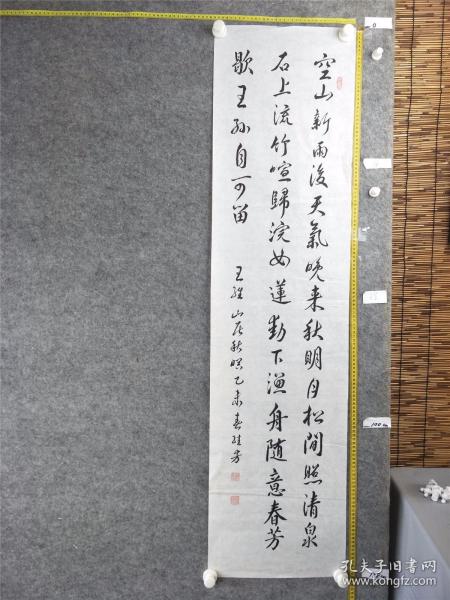 空山新雨後天氣晚来秋明月松間照清泉
石上流竹喧歸浣女蓮動下漁舟随意春芳
歇王孫自可留
王維山居秋暝乙未春
孔夫子旧书网
kongfz.com